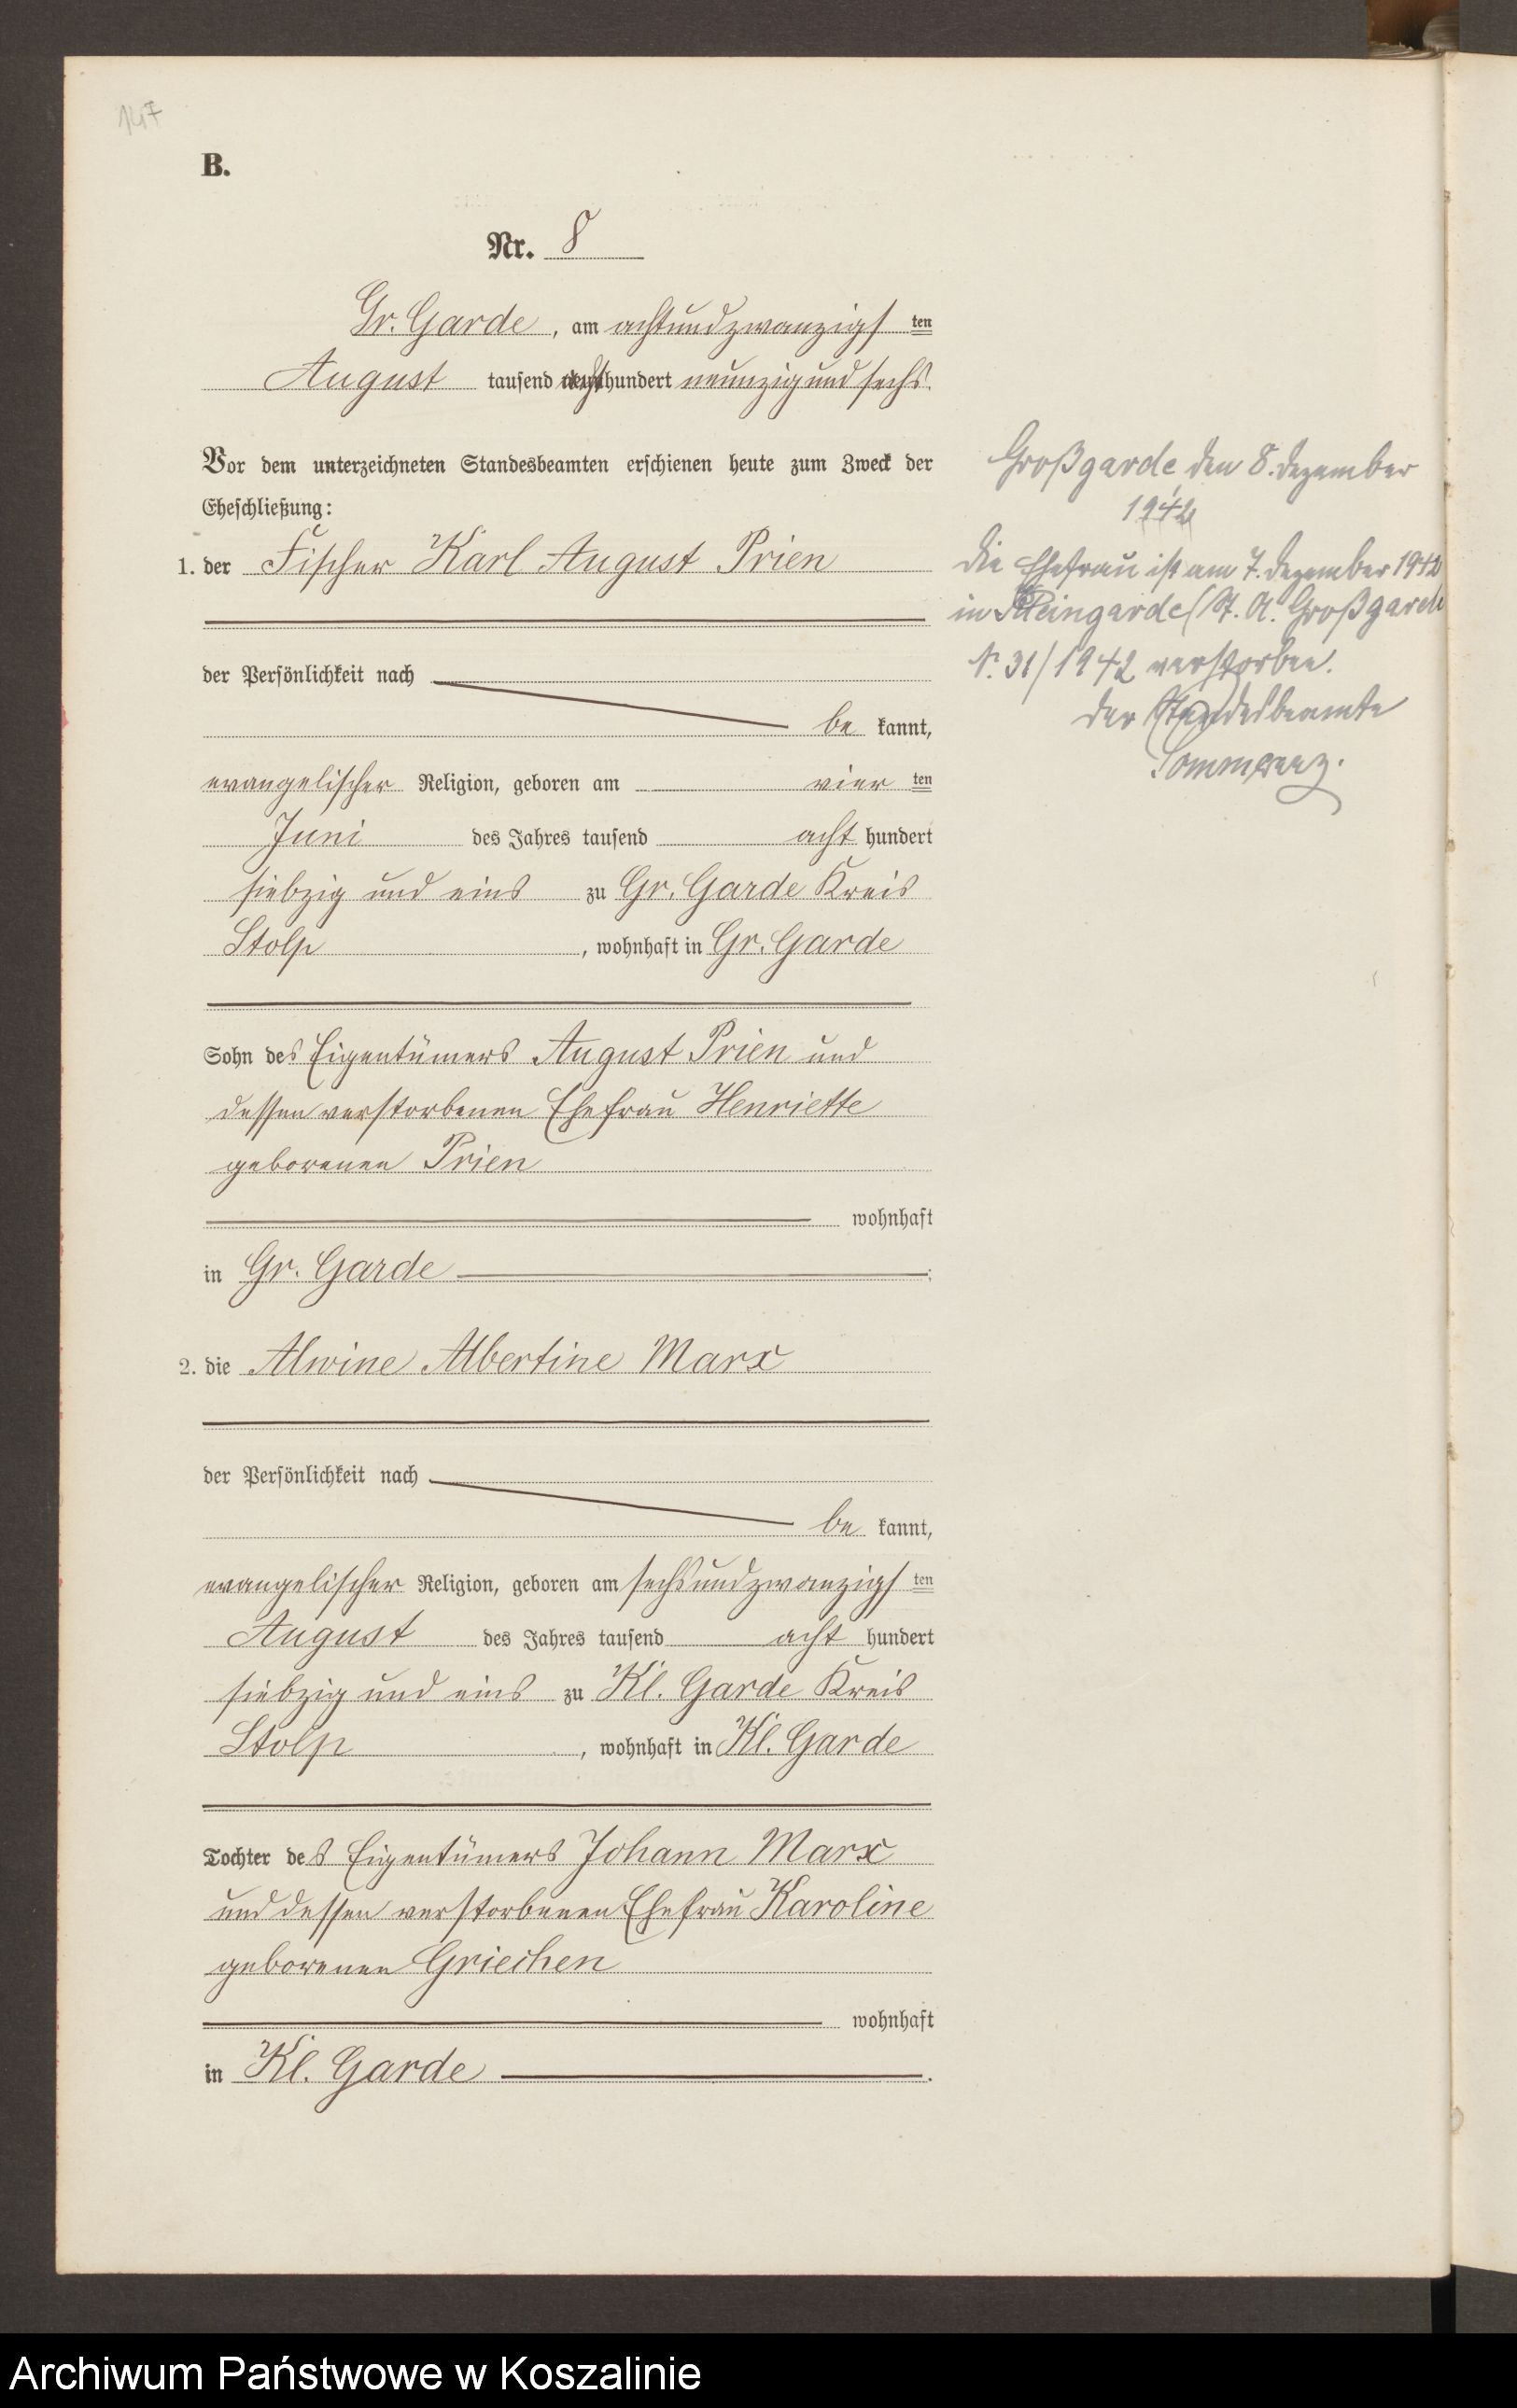 147
B.
Nr. 8
Gr. Garde, am achtundzwanzigsten
August tausend achthundert neunzig und sechs.
Vor dem unterzeichneten Standesbeamten erschienen heute zum Zweck der
Eheschließung:
1. der Fischer Karl August Prien
der Persönlichkeit nach
be kannt,
evangelischer Religion, geboren am vier ten
Juni des Jahres tausend acht hundert
siebzig und eins zu Gr. Garde Kreis
Stolp, wohnhaft in Gr. Garde
Sohn des Eigentümers August Prien und
dessen verstorbenen Ehefrau Henriette
geborenen Prien
wohnhaft
in Gr. Garde;
2. die Alwine Albertine Marx
der Persönlichkeit nach
be kannt,
evangelischer Religion, geboren am sechsundzwanzigsten
August des Jahres tausend acht hundert
siebzig und eins zu Kl. Garde Kreis
Stolp, wohnhaft in Kl. Garde
Tochter des Eigentümers Johann Marx
und dessen verstorbenen Ehefrau Karoline
geborenen Griechen
wohnhaft
in Kl. Garde.
Großgarde, den 8. Dezember
1942
Die Ehefrau ist am 7. Dezember 1942
in Kleingarde (St. A. Großgarde
Nr. 31/1942 verstorben.
Der Standesbeamte
Archiwum Państwowe w Koszalinie